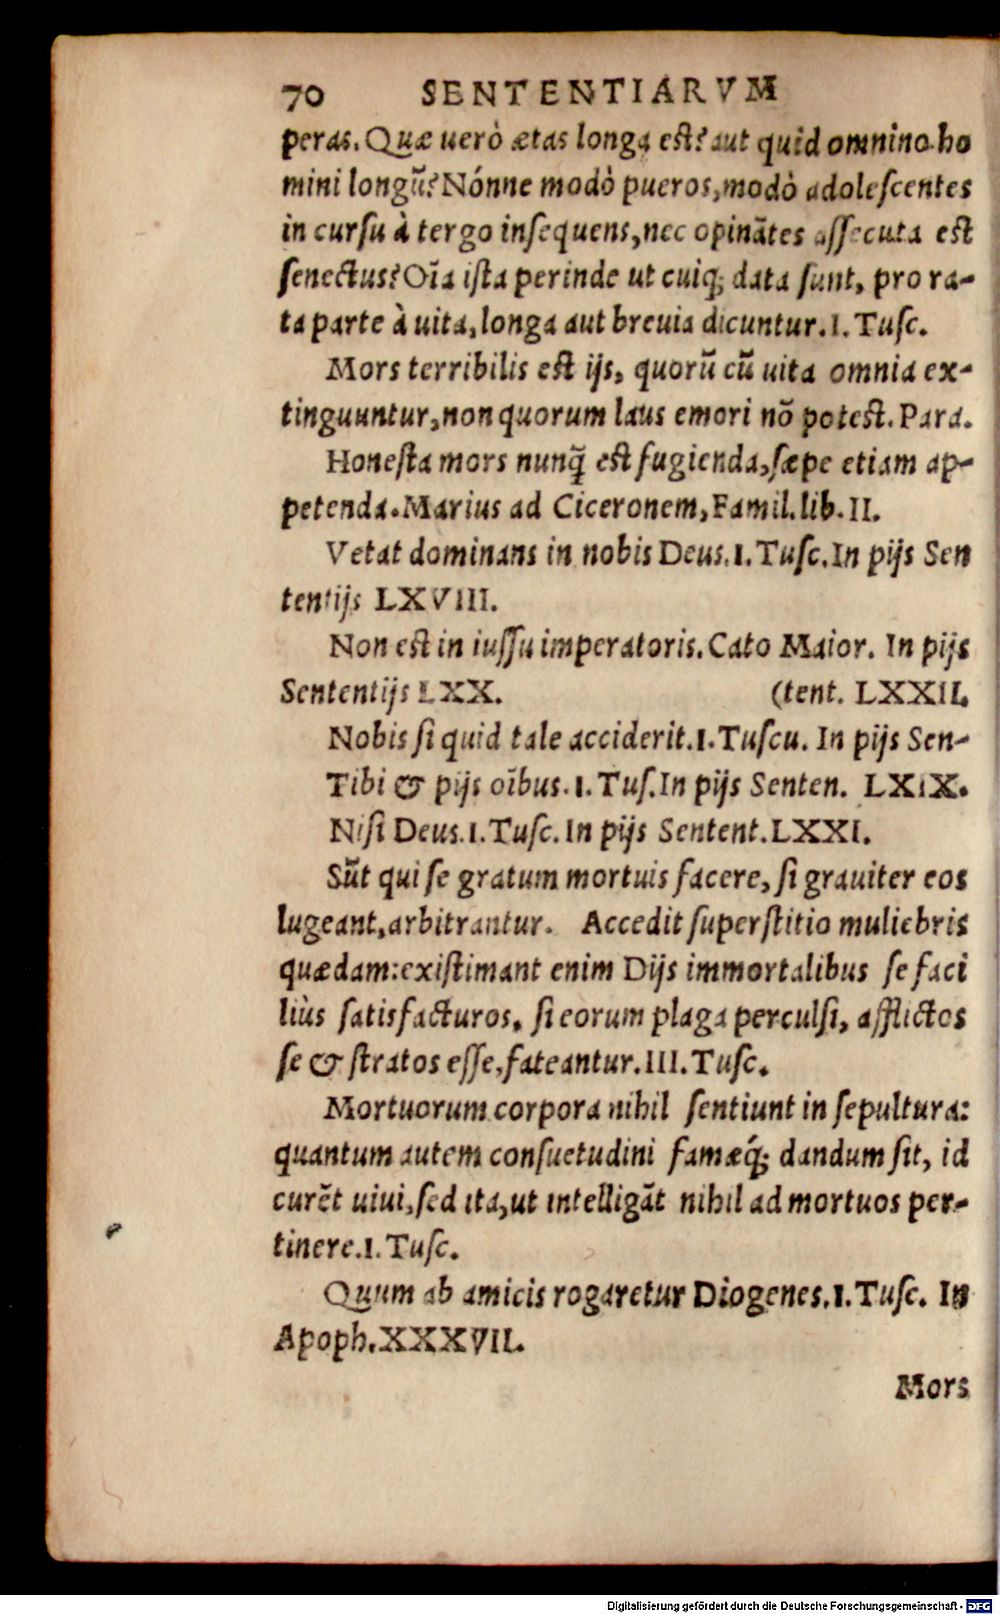 70 SENTENTIARVM
peras. Quæ uerò ætas longa est? aut quid omnino ho
mini longũ? Nónne modò pueros, modò adolescentes
in cursu à tergo insequens, nec opinãtes assecuta est
senectus? Oĩa ista perinde ut cuiq; data sunt, pro ra-
ta parte à uita, longa aut breuia dicuntur. I. Tusc.
Mors terribilis est ijs, quorũ cũ uita omnia ex-
tinguuntur, non quorum laus emori nõ potest. Para.
Honesta mors nunq̃ est fugienda, sæpe etiam ap-
petenda. Marius ad Ciceronem, Famil. lib. II.
Vetat dominans in nobis Deus. I. Tusc. In pijs Sen
tentijs LXVIII.
Non est in iussu imperatoris. Cato Maior. In pijs
Sententijs LXX. (tent. LXXII.
Nobis si quid tale acciderit. I. Tuscu. In pijs Sen-
Tibi & pijs oĩbus. I. Tus. In pijs Senten. LXIX.
Nisi Deus. I. Tusc. In pijs Sentent. LXXI.
Sũt qui se gratum mortuis facere, si grauiter eos
lugeant, arbitrantur. Accedit superstitio muliebris
quædam: existimant enim Dijs immortalibus se faci
liùs satisfacturos, si eorum plaga perculsi, afflictos
se & stratos esse, fateantur. III. Tusc.
Mortuorum corpora nihil sentiunt in sepultura:
quantum autem consuetudini famæq́; dandum sit, id
curẽt uiui, sed ita, ut intelligãt nihil ad mortuos per-
tinere. I. Tusc.
Quum ab amicis rogaretur Diogenes. I. Tusc. In
Apoph. XXXVII.
Mors
Digitalisierung gefördert durch die Deutsche Forschungsgemeinschaft - DFG